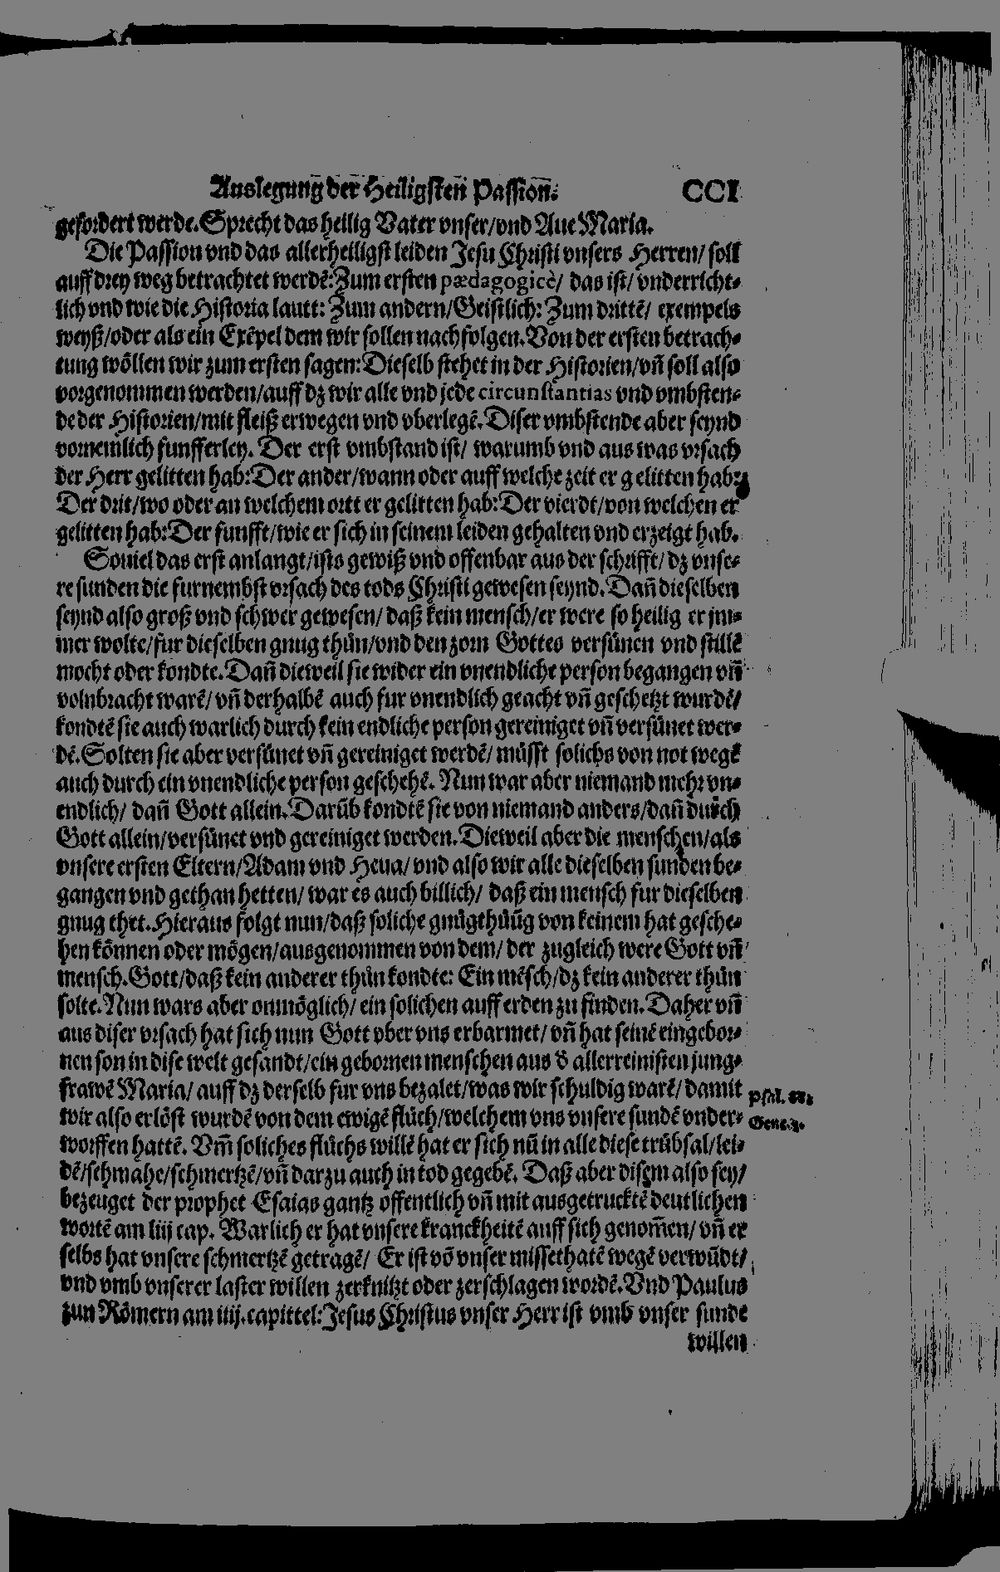 Auslegung der Heiligsten Passion. CCI
gefordert werde. Sprecht das heilig Vater vnser/vnd Aue Maria.
Die Passion vnd das allerheiligst leiden Jesu Christi vnsers Herren/ soll
auff drey weg betrachtet werdẽ: Zum ersten pædagogicè/ das ist/ vnderricht-
lich vnd wie die Historia lautt: Zum andern/Geistlich: Zum drittẽ/ exempels
weyß/oder als ein Exẽpel dem wir sollen nachfolgen. Von der ersten betrach-
tung wöllen wir zum ersten sagen: Dieselb stehet in der Historien/vñ soll also
vorgenommen werden/auff dz wir alle vnd jede circunstantias vnd vmbsten-
de der Historien/mit fleiß erwegen vnd vberlegẽ. Diser vmbstende aber seynd
vornemlich funfferley. Der erst vmbstand ist/ warumb vnd aus was vrsach
der Herr gelitten hab: Der ander/wann oder auff welche zeit er gelitten hab:
Der drit/wo oder an welchem ortt er gelitten hab: Der vierdt/von welchen er
gelitten hab: Der funfft/wie er sich in seinem leiden gehalten vnd erzeigt hab.
Souiel das erst anlangt/ists gewiß vnd offenbar aus der schrifft/ dz vnse-
re sunden die furnembst vrsach des tods Christi gewesen seynd. Dañ dieselben
seynd also groß vnd schwer gewesen/ daß kein mensch/er were so heilig er jm-
mer wolte/fur dieselben gnug thůn/vnd den zorn Gottes versünen vnd stillẽ
mocht oder kondte. Dañ dieweil sie wider ein vnendliche person begangen vñ
volnbracht warẽ/ vñ derhalbẽ auch fur vnendlich geacht vñ geschetzt wurdẽ/
kondtẽ sie auch warlich durch kein endliche person gereiniget vñ versünet wer-
dẽ. Solten sie aber versünet vñ gereiniget werdẽ/ müsst solichs von not wegẽ
auch durch ein vnendliche person geschehẽ. Nun war aber niemand mehr vn-
endlich/ dañ Gott allein. Darũb kondtẽ sie von niemand anders/dañ durch
Gott allein/versünet vnd gereiniget werden. Dieweil aber die menschen/als
vnsere ersten Eltern/Adam vnd Heua/ vnd also wir alle dieselben sunden be-
gangen vnd gethan hetten/ war es auch billich/ daß ein mensch fur dieselben
gnug thet. Hieraus folgt nun/daß soliche gnůgthůũg von keinem hat gesche-
hen können oder mögen/ausgenommen von dem/ der zugleich were Gott vñ
mensch. Gott/daß kein anderer thůn kondte: Ein mẽsch/dz kein anderer thůn
solte. Nun wars aber onmöglich/ ein solichen auff erden zu finden. Daher vñ
aus diser vrsach hat sich nun Gott vber vns erbarmet/ vñ hat seinẽ eingebor-
nen son in dise welt gesandt/ein gebornen menschen aus d allerreinisten jung-
frawẽ Maria/ auff dz derselb fur vns bezalet/was wir schuldig warẽ/ damit
wir also erlöst wurdẽ von dem ewigẽ flůch/welchem vns vnsere sundẽ vnder-
worffen hattẽ. Vm̃ soliches flůchs willẽ hat er sich nũ in alle diese trübsal/lei-
dẽ/schmahe/schmertzẽ/vñ darzu auch in tod gegebẽ. Daß aber disem also sey/
bezeuget der prophet Esaias gantz offentlich vñ mit ausgetrucktẽ deutlichen
wortẽ am liij cap. Warlich er hat vnsere kranckheitẽ auff sich genom̃en/ vñ er
selbs hat vnsere schmertzẽ getragẽ/ Er ist võ vnser missethatẽ wegẽ verwũdt/
vnd vmb vnserer laster willen zerknitzt oder zerschlagen wordẽ. Vnd Paulus
zun Römern am iiij. capittel: Jesus Christus vnser Herr ist vmb vnser sunde
willen
Gene. 3.